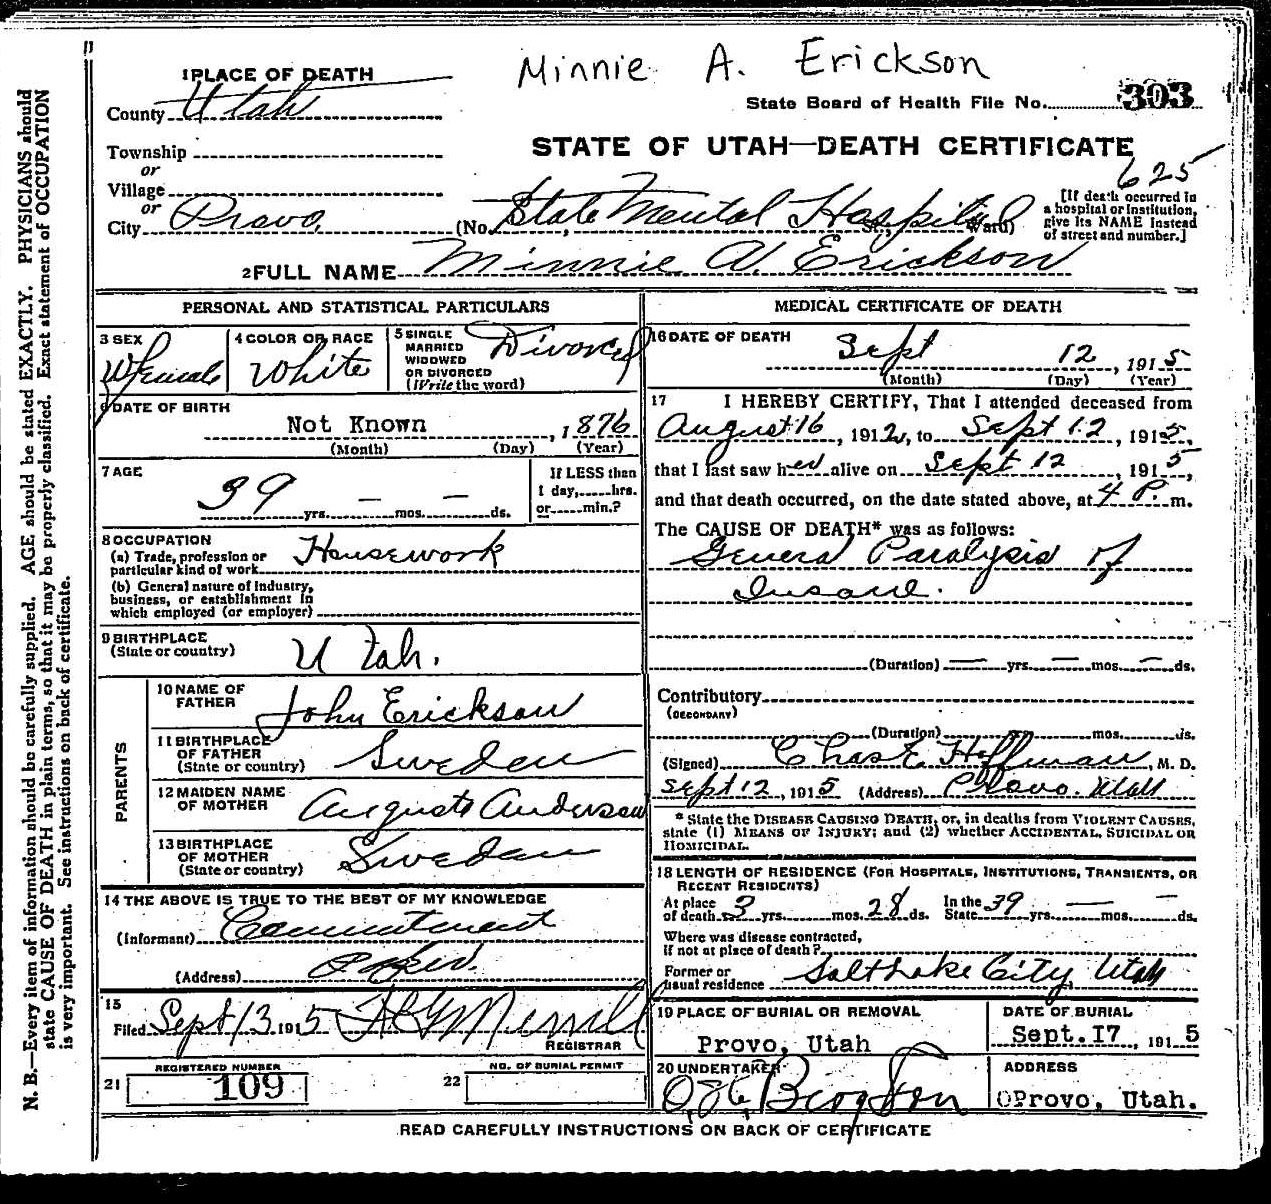 Minnie A. Erickson
1 PLACE OF DEATH
County Utah
State Board of Health File No. 303
Township
or
Village
or
City Provo.
STATE OF UTAH—DEATH CERTIFICATE
625
(No. State Mental Hospital St., Ward)
[If death occurred in
a hospital or institution,
give its NAME instead
of street and number.]
2 FULL NAME Minnie A. Erickson
PERSONAL AND STATISTICAL PARTICULARS
3 SEX
Female
4 COLOR OR RACE
White
5 SINGLE
MARRIED
WIDOWED
OR DIVORCED
(Write the word)
Divorced
6 DATE OF BIRTH
Not Known, 1876
(Month) (Day) (Year)
7 AGE
39 yrs. — mos. — ds.
If LESS than
1 day,......hrs.
or......min.?
8 OCCUPATION
(a) Trade, profession or
particular kind of work Housework
(b) General nature of industry,
business, or establishment in
which employed (or employer)
9 BIRTHPLACE
(State or country)
Utah.
PARENTS
10 NAME OF
FATHER
John Erickson
11 BIRTHPLACE
OF FATHER
(State or country)
Sweden
12 MAIDEN NAME
OF MOTHER
Augusta Anderson
13 BIRTHPLACE
OF MOTHER
(State or country)
Sweden
14 THE ABOVE IS TRUE TO THE BEST OF MY KNOWLEDGE
(Informant) Commitment
(Address)
15
Filed Sept 13 1915
Merrill
REGISTRAR
REGISTERED NUMBER
21 109
22 NO. OF BURIAL PERMIT
MEDICAL CERTIFICATE OF DEATH
16 DATE OF DEATH
Sept 12, 1915
(Month) (Day) (Year)
17 I HEREBY CERTIFY, That I attended deceased from
August 16, 1912, to Sept 12, 1915,
that I last saw her alive on Sept 12, 1915,
and that death occurred, on the date stated above, at 4 P. m.
The CAUSE OF DEATH* was as follows:
General Paralysis of
Insane.
(Duration) — yrs. — mos. — ds.
Contributory
(SECONDARY)
(Duration) yrs. mos. ds.
(Signed) Chas E Hoffman, M. D.
Sept 12, 1915 (Address) Provo. Utah
* State the DISEASE CAUSING DEATH, or, in deaths from VIOLENT CAUSES,
state (1) MEANS OF INJURY; and (2) whether ACCIDENTAL, SUICIDAL OR
HOMICIDAL.
18 LENGTH OF RESIDENCE (FOR HOSPITALS, INSTITUTIONS, TRANSIENTS, OR
RECENT RESIDENTS)
At place
of death 3 yrs. mos. 28 ds.
In the
State 39 yrs. — mos. — ds.
Where was disease contracted,
if not at place of death?
Former or
usual residence Salt Lake City, Utah
19 PLACE OF BURIAL OR REMOVAL
Provo, Utah
DATE OF BURIAL
Sept. 17, 1915
20 UNDERTAKER
ADDRESS
Provo, Utah.
READ CAREFULLY INSTRUCTIONS ON BACK OF CERTIFICATE
N. B.—Every item of information should be carefully supplied. AGE should be stated EXACTLY. PHYSICIANS should
state CAUSE OF DEATH in plain terms, so that it may be properly classified. Exact statement of OCCUPATION
is very important. See instructions on back of certificate.